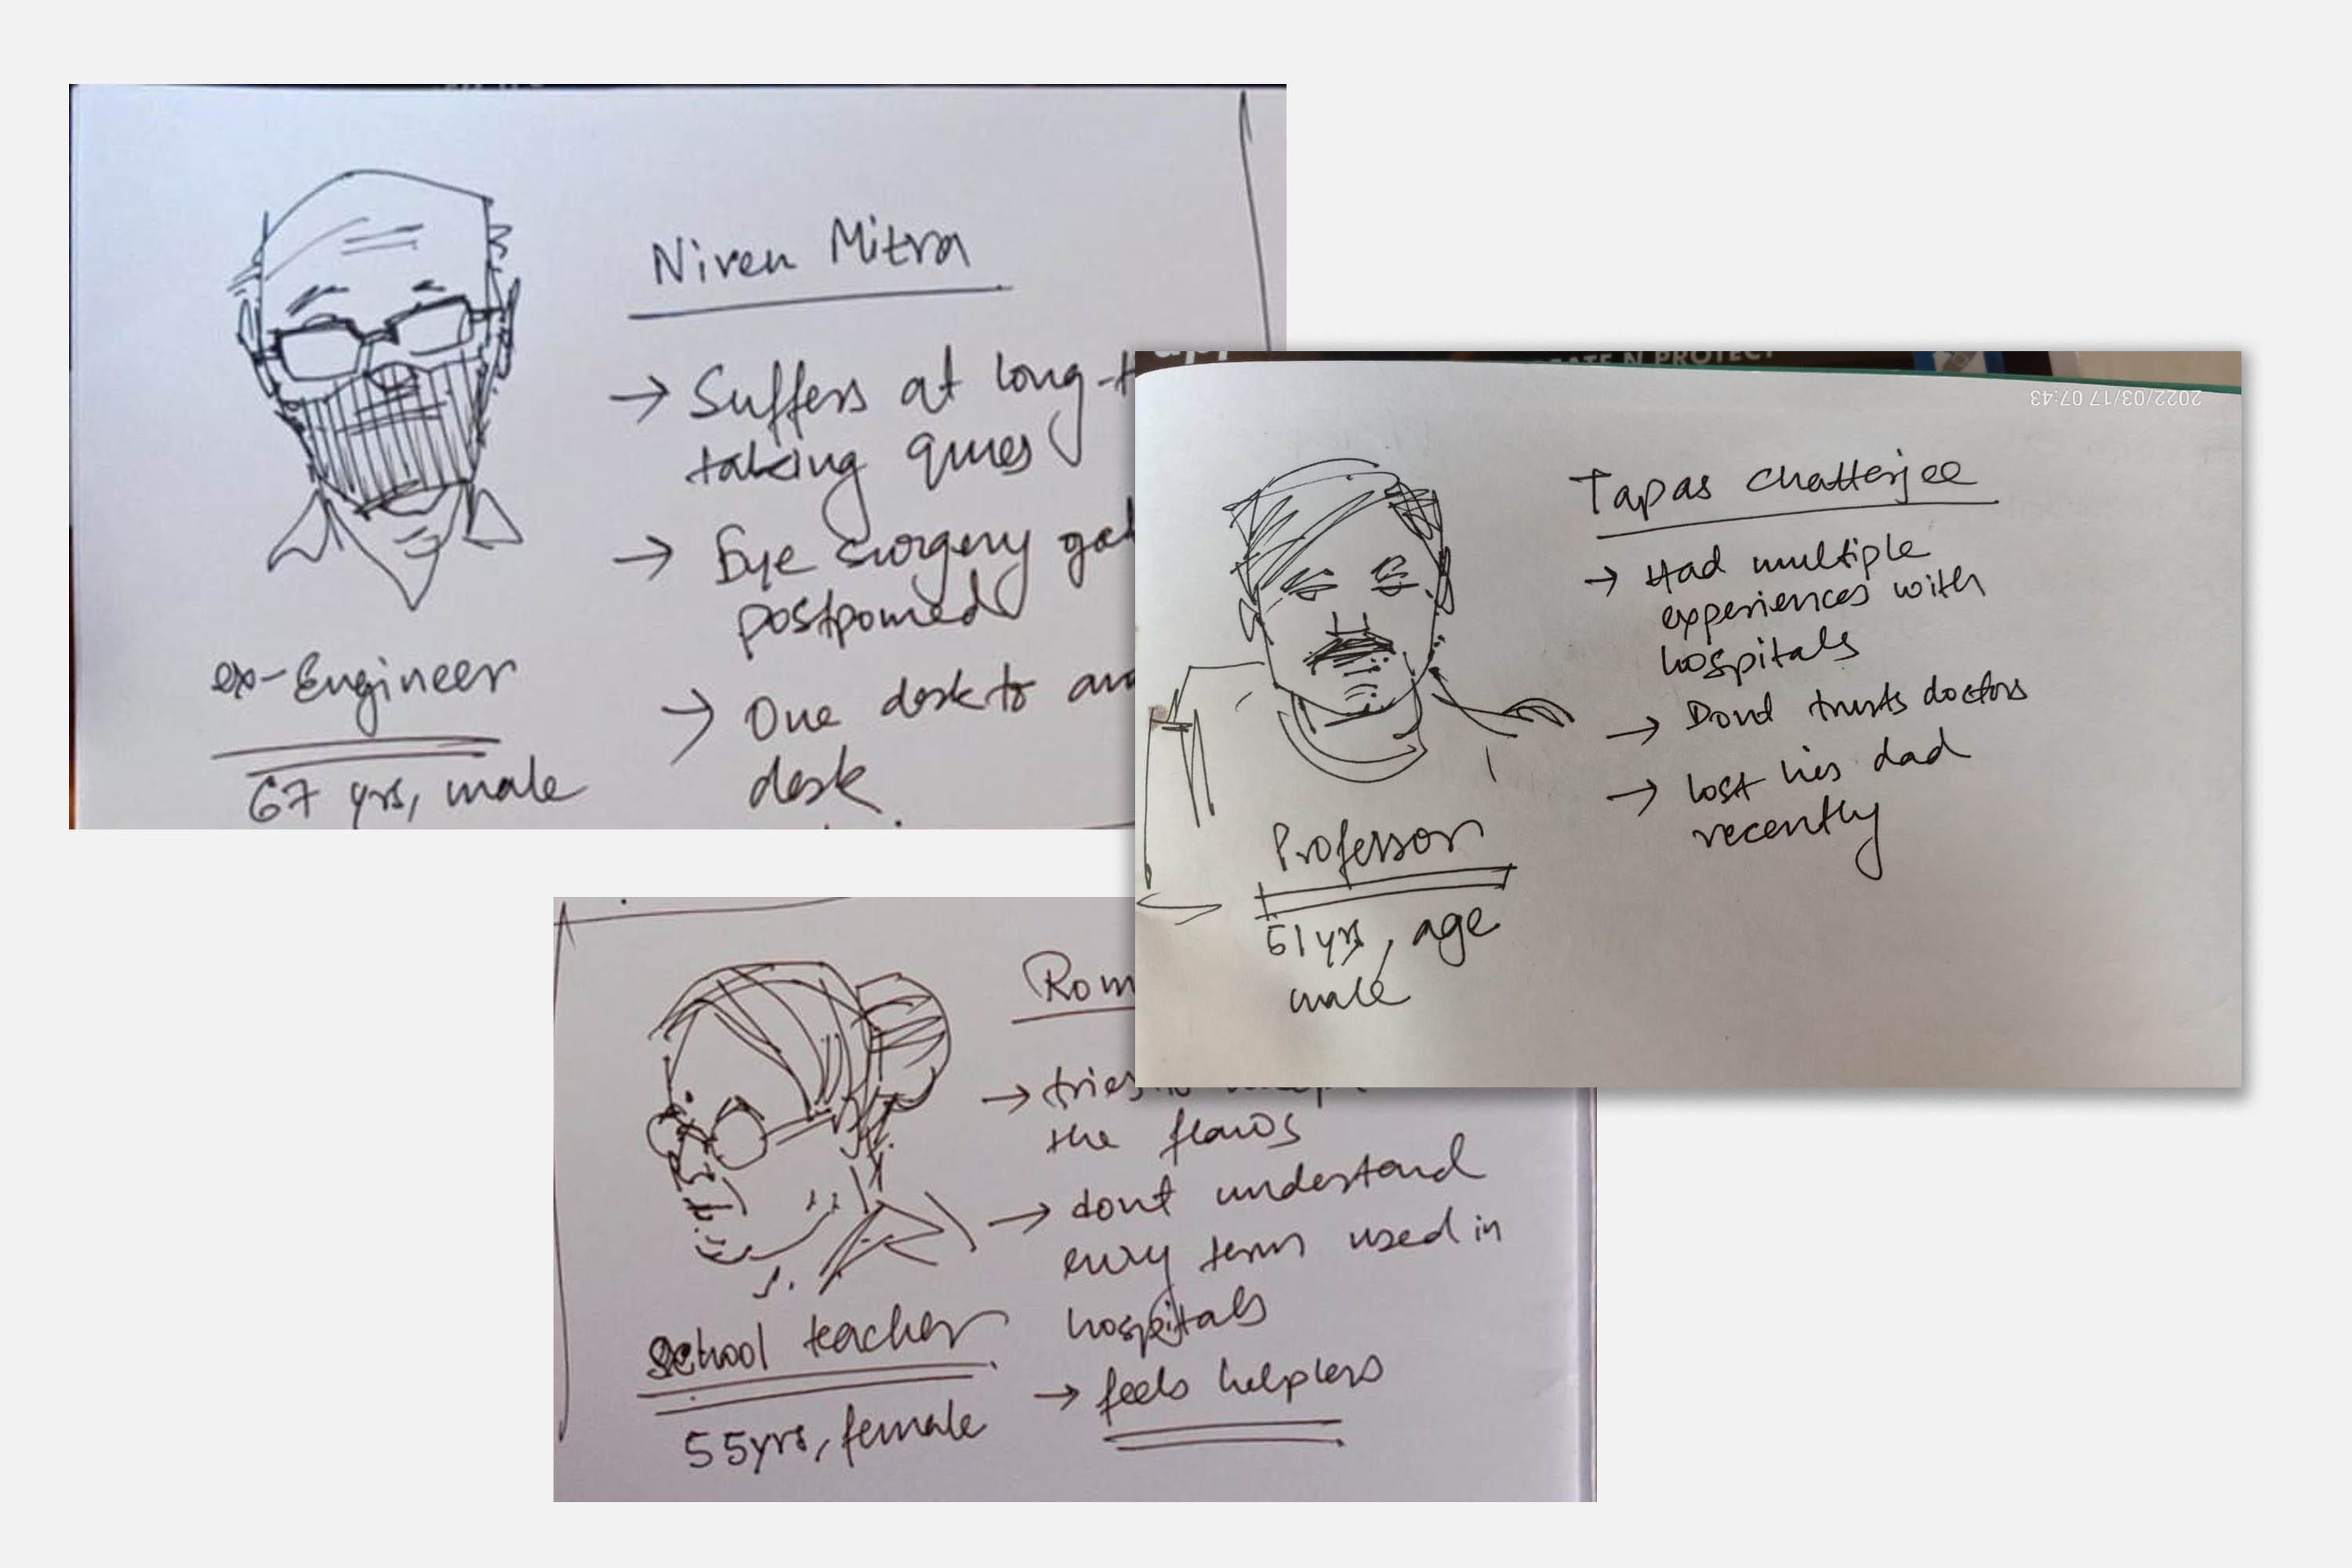 Niren Mitra
→ Suffers at long-t
taking ques
→ Eye surgery got
postponed
→ One desk to an
desk
ex-Engineer
67 yrs, male
2022/03/17 07:43
Tapas Chatterjee
→ Had multiple
experiences with
hospitals
→ Dont trusts doctors
→ lost his dad
recently
Professor
51 yrs, age
male
Rom
→ tries to
the flaws
→ dont understand
every term used in
hospitals
→ feels helpless
School teacher
55yrs, female
N PROTECT